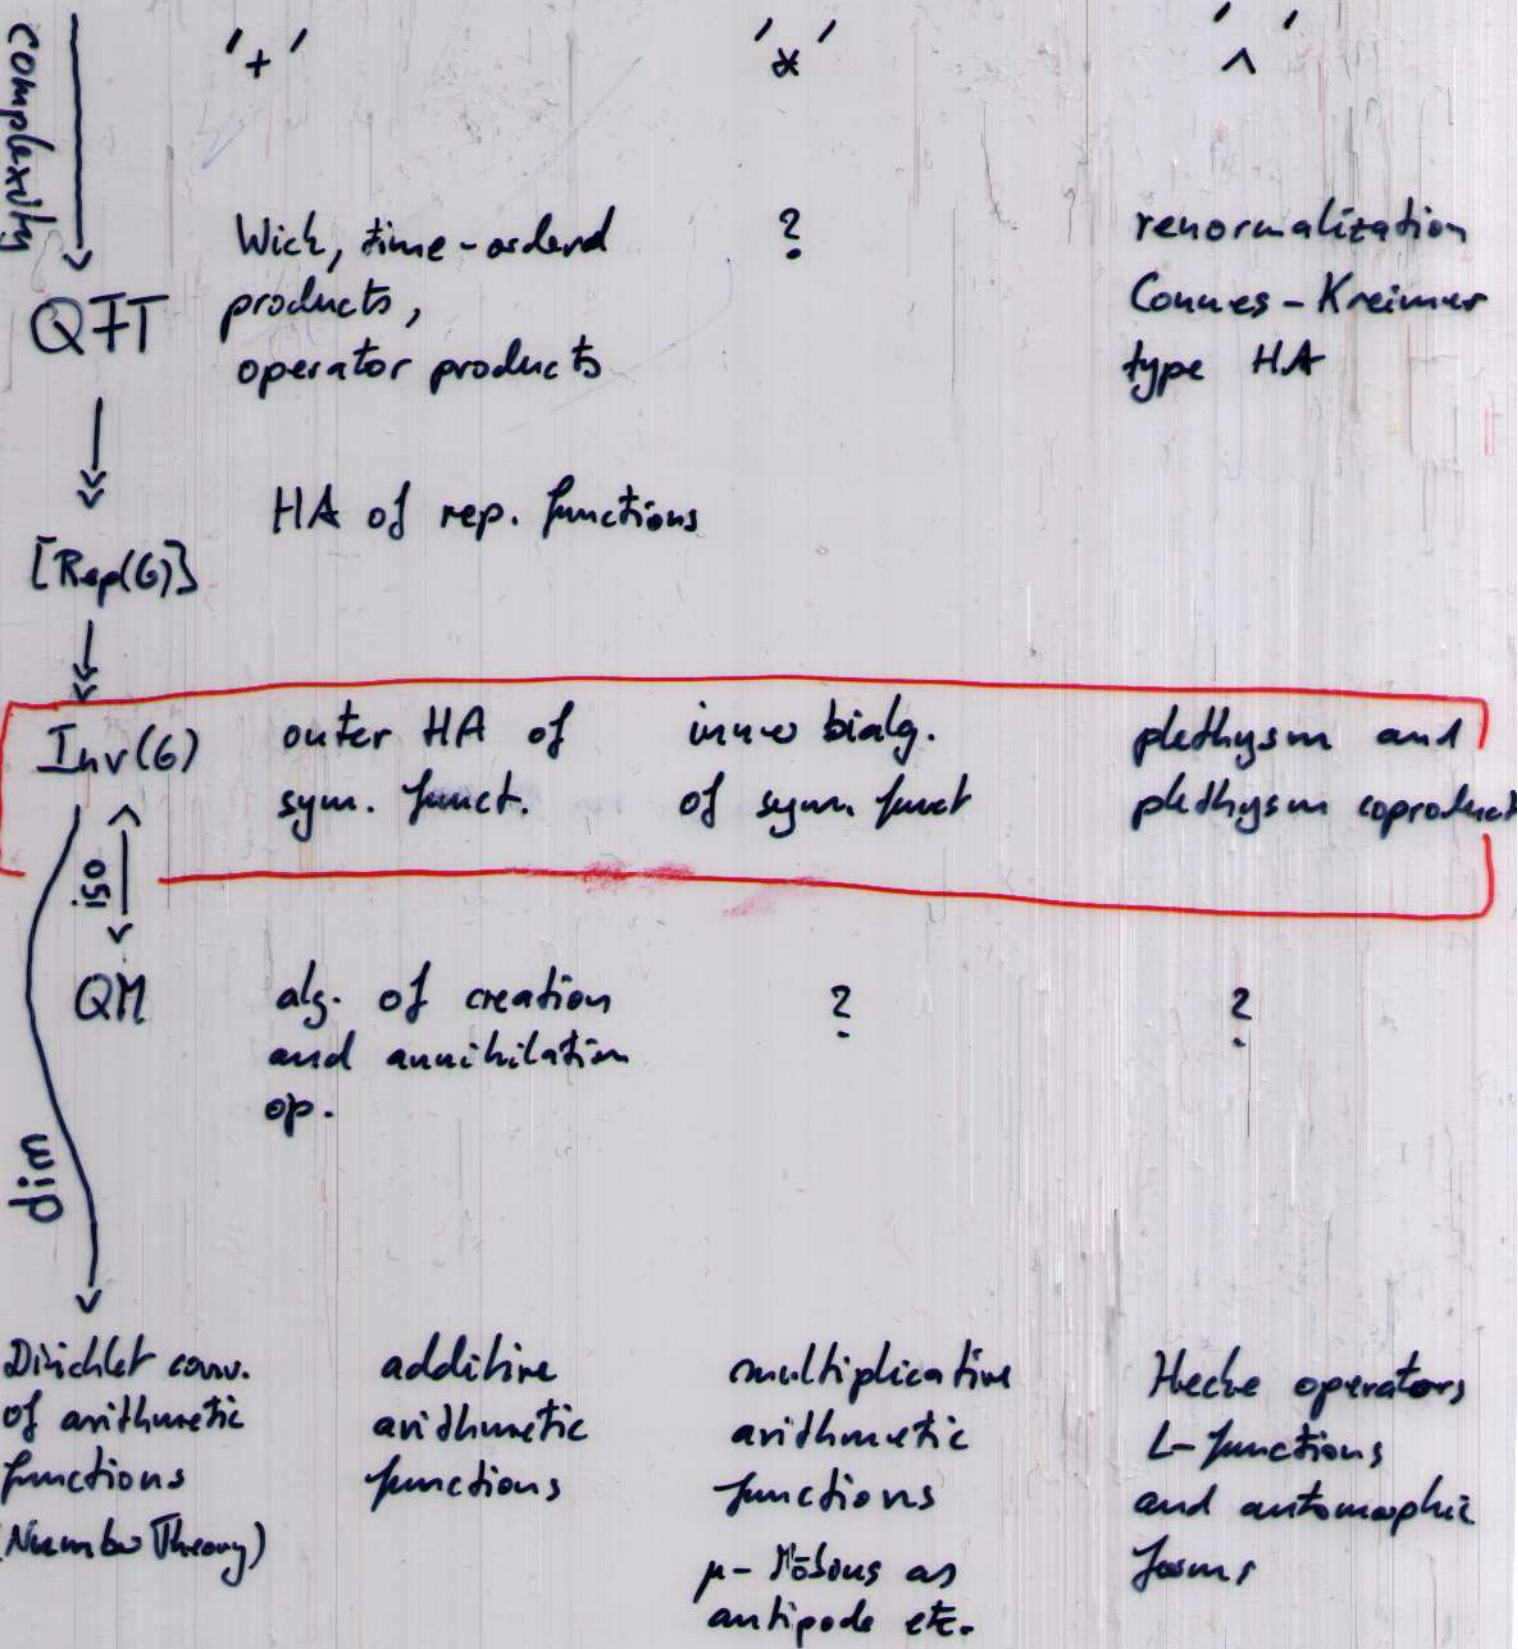 complexity
'+'
'*'
'^'
QFT
Wick, time-orderd
products,
operator products
?
renormalization
Connes-Kreimer
type HA
[Rep(G)]
HA of rep. functions
Inv(G)
outer HA of
sym. funct.
inner bialg.
of sym. funct
plethysm and
plethysm coproduct
iso.
QM
alg. of creation
and annihilation
op.
?
?
dim
Dirichlet conv.
of arithmetic
functions
(Number Theory)
additive
arithmetic
functions
multiplicative
arithmetic
functions
μ- Möbius as
antipode etc.
Hecke operators
L-functions
and automorphic
forms